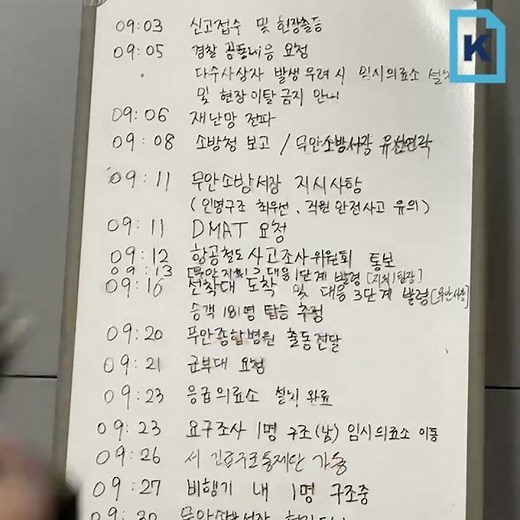 K
09:03 신고접수 및 현장출동
09:05 경찰 공동대응 요청
다수사상자 발생우려 시 임시의료소 설치
및 현장이탈 금지 안내
09:06 재난망 전파
09:08 소방청 보고 / 무안소방서장 유선연락
09:11 무안소방서장 지시사항
(인명구조 최우선, 직원 안전사고 유의)
09:11 DMAT 요청
09:12 항공철도사고조사위원회 통보
09:13 대응1단계 발령
09:16 선착대 도착 및 대응3단계 발령
승객 181명 탑승 추정
09:20 무안종합병원 출동전달
09:21 군부대 요청
09:23 응급의료소 설치 완료
09:23 요구조사 1명 구조(남) 임시의료소 이동
09:26 긴급구조통제단 가동
09:27 비행기 내 1명 구조중
09:30 무안소방서장